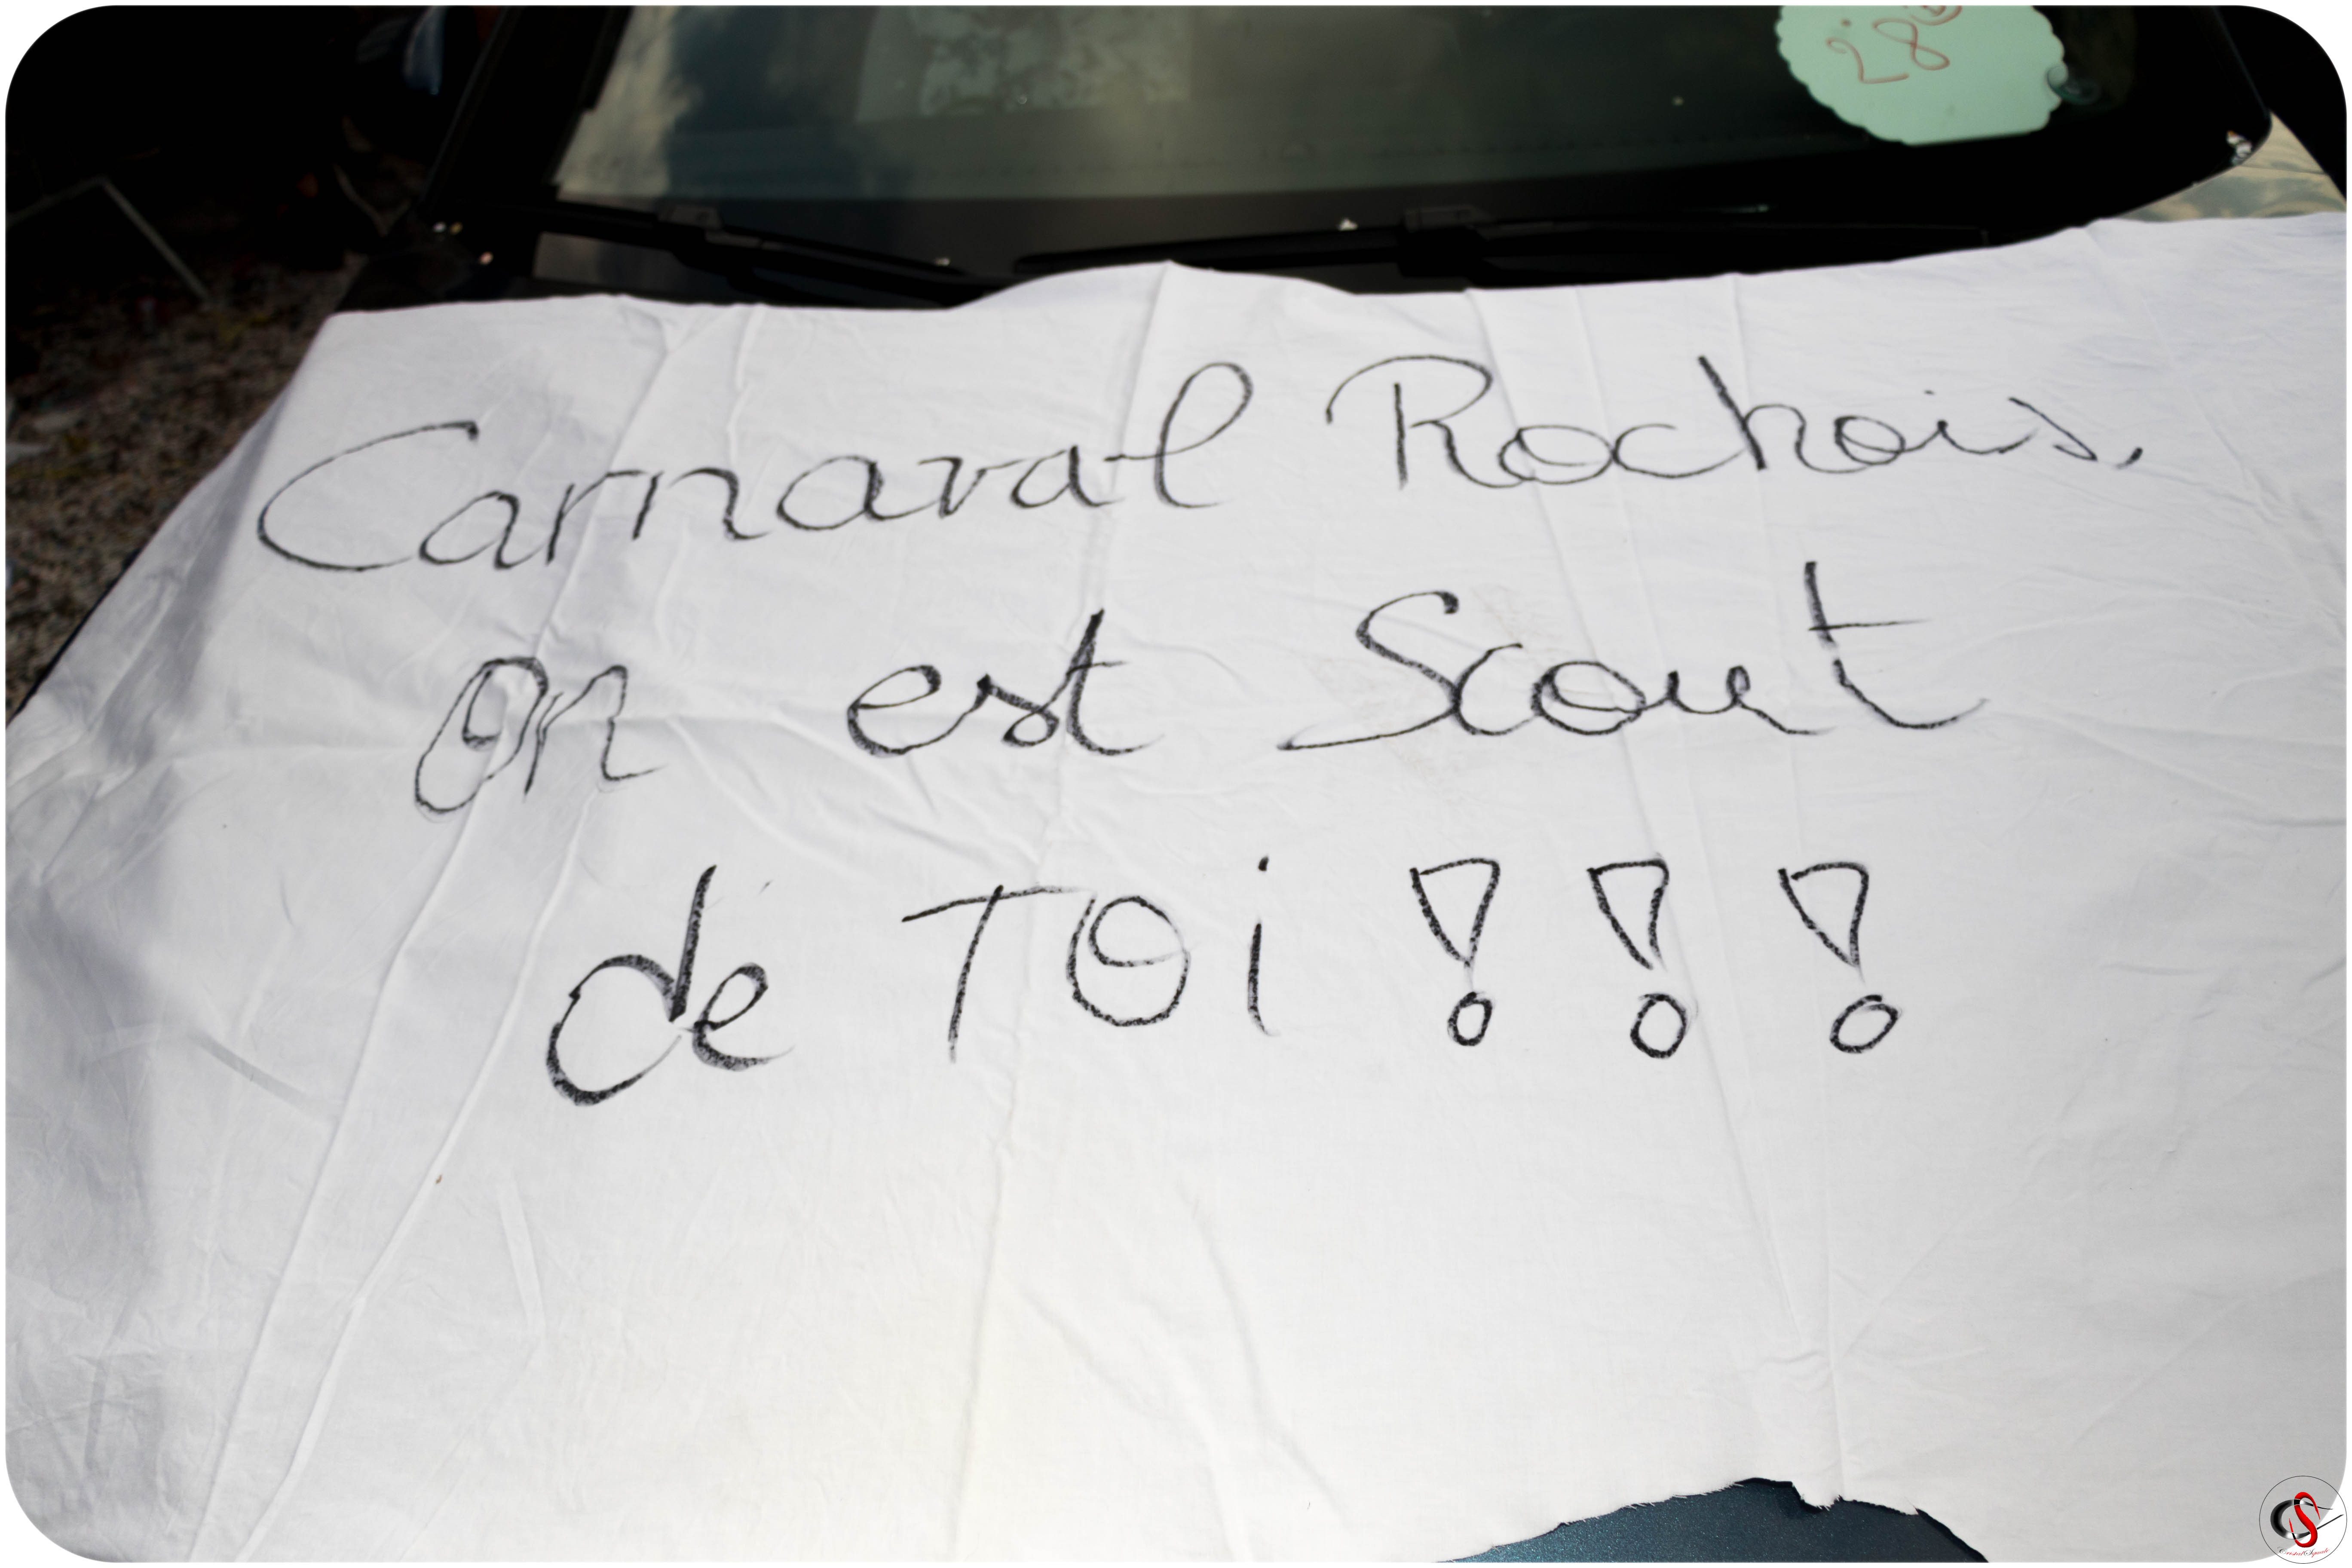 28
Carnaval Rochois,
on est Scout
de TOi !!!